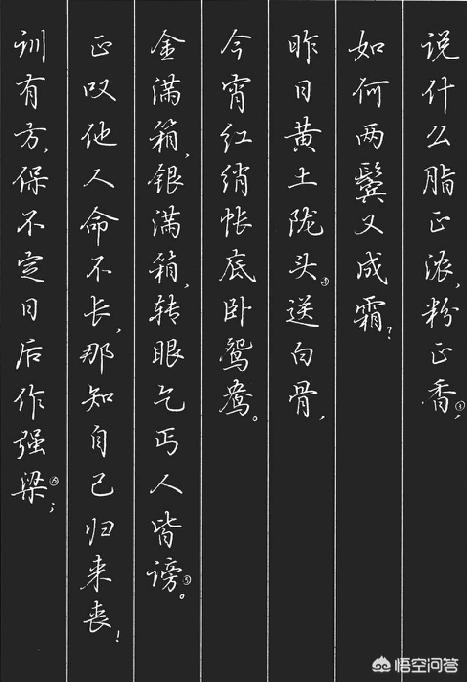 说什么脂正浓,粉正香①,
如何两鬓又成霜?
昨日黄土陇头③送白骨,
今宵红绡帐底卧鸳鸯。
金满箱,银满箱,转眼乞丐人皆谤⑤。
正叹他人命不长,那知自己归来丧!
训有方,保不定日后作强梁⑥;
悟空问答